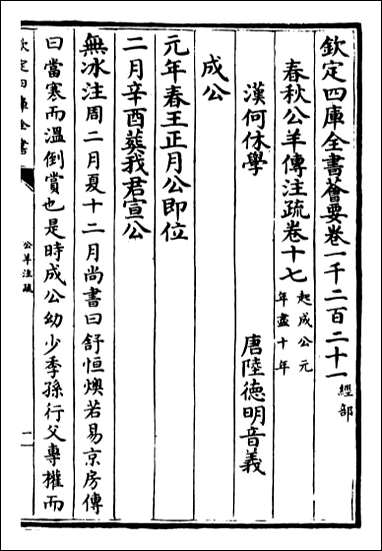 欽定四庫全書薈要卷一千二百二十一經部
春秋公羊傳注疏卷十七起成公元年盡十年
漢何休學 唐陸徳明音義
成公
元年春王正月公即位
二月辛酉葬我君宣公
無冰注周二月夏十二月尚書曰舒恒燠若易京房傳
曰當寒而溫倒賞也是時成公幼少季孫行父專權而
欽定四庫全書
公羊注疏